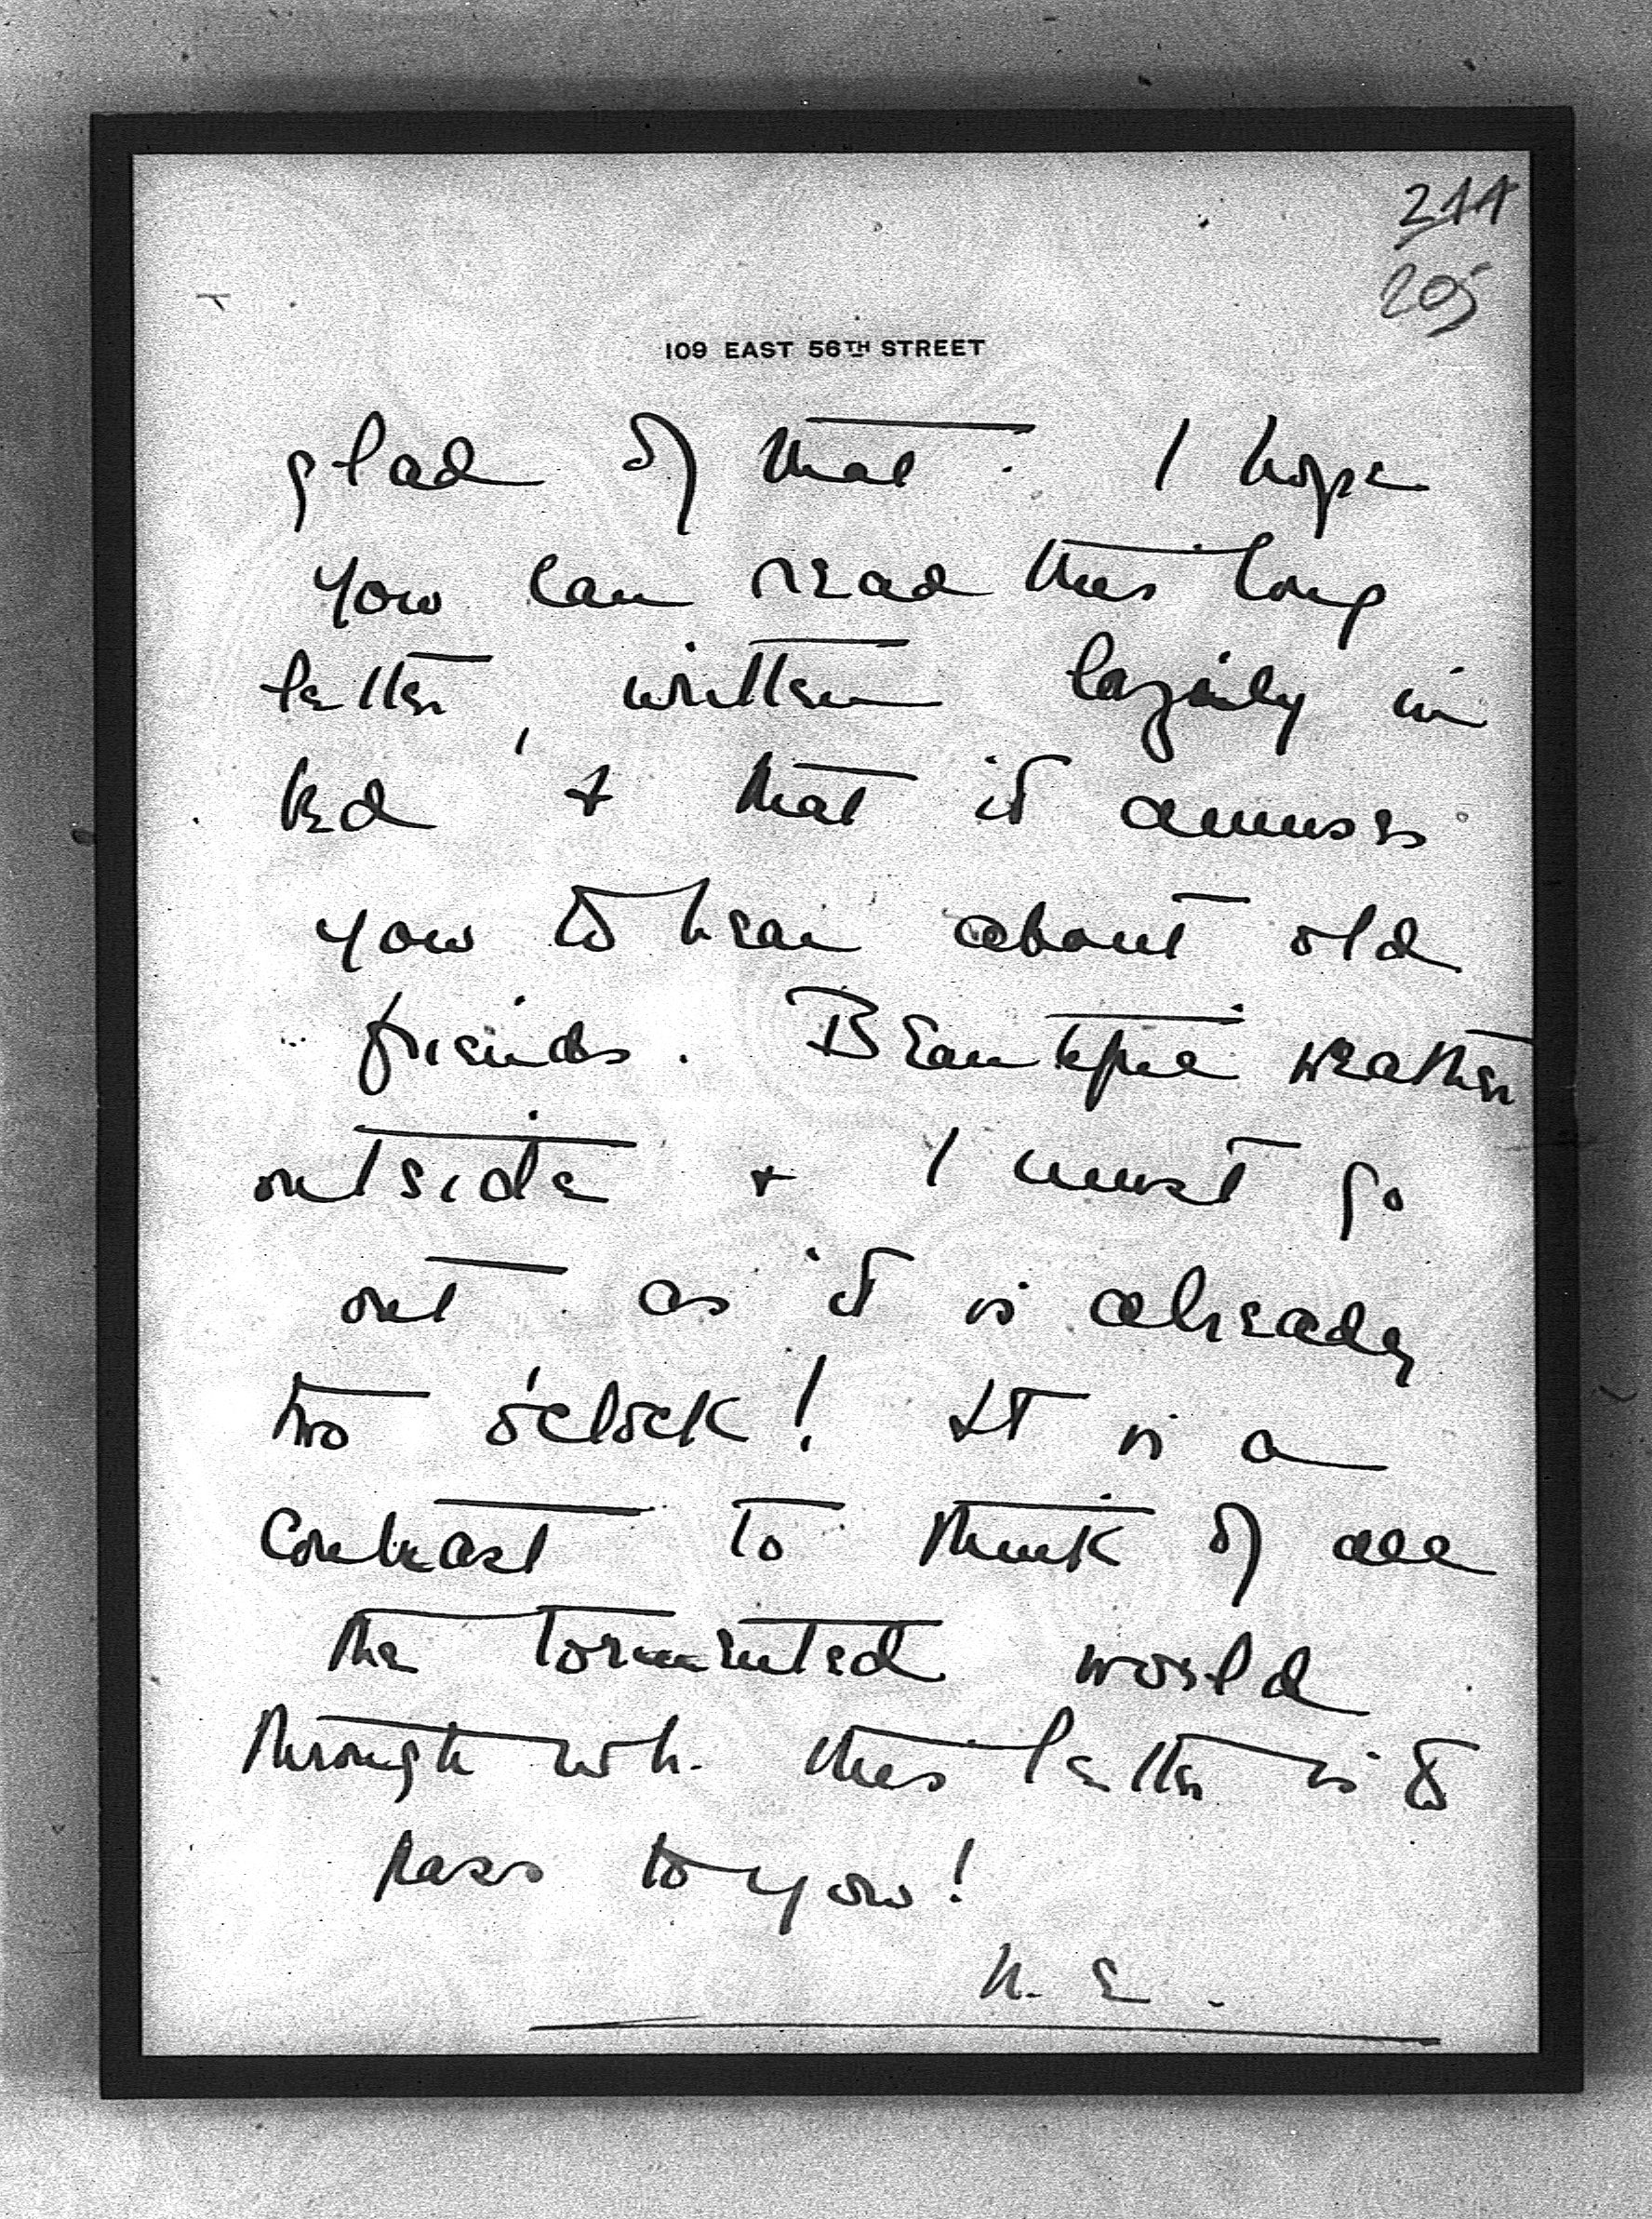 205
109 EAST 56TH STREET
glad of that. I hope
you can read this long
letter, written lazily in
bed & that it amuses
you to hear about old
friends. Beautiful weather
outside & I must go
out as it is already
two o'clock! It is a
contrast to think of all
the tormented world
through wh. this letter is to
pass to you!